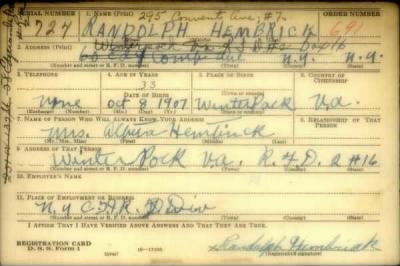 SERIAL NUMBER 1. NAME (Print) 295 Convent Ave. #7. ORDER NUMBER
727 RANDOLPH HEMBRICK 691
2. ADDRESS (Print)
N.Y. N.Y.
(Number and street or R. F. D. number) (Town) (County) (State)
3. TELEPHONE 4. AGE IN YEARS 5. PLACE OF BIRTH 6. COUNTRY OF CITIZENSHIP
33
DATE OF BIRTH
None Oct 8 1907 Winter Pock Va.
(Exchange) (Number) (Mo.) (Day) (Yr.) (Town or county) (State or country)
7. NAME OF PERSON WHO WILL ALWAYS KNOW YOUR ADDRESS 8. RELATIONSHIP OF THAT PERSON
Mrs. Hembrick
(Mr., Mrs., Miss) (First) (Middle) (Last)
9. ADDRESS OF THAT PERSON
Winter Pock Va. R.F.D. 2 #16
(Number and street or R. F. D. number) (Town) (County) (State)
10. EMPLOYER'S NAME
11. PLACE OF EMPLOYMENT OR BUSINESS
N.Y.C. Div
(Number and street or R. F. D. number) (Town) (County) (State)
I AFFIRM THAT I HAVE VERIFIED ABOVE ANSWERS AND THAT THEY ARE TRUE.
REGISTRATION CARD
D. S. S. Form 1 Randolph Hembrick
(Registrant's signature)